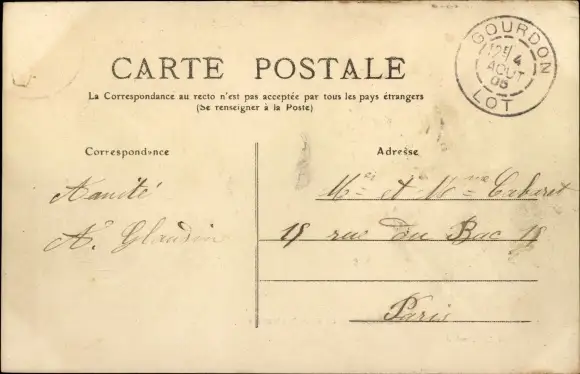 CARTE POSTALE
La Correspondance au recto n'est pas acceptée par tous les pays étrangers
(Se renseigner à la Poste)
GOURDON
4
AOUT
05
LOT
Correspondance
Adresse
A.
Mr et Mme
15 rue du Bac 15
Paris